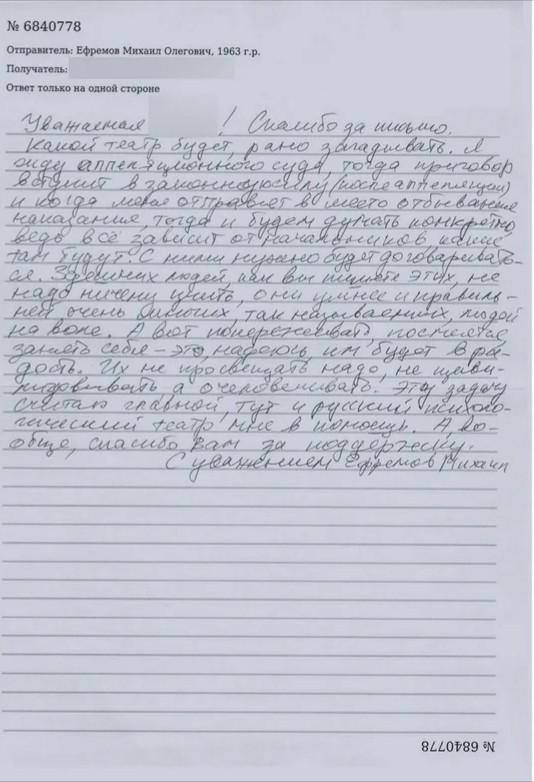 № 6840778
Отправитель: Ефремов Михаил Олегович, 1963 г.р.
Получатель:
Ответ только на одной стороне
Уважаемая ! Спасибо за письмо.
Какой театр будет, рано загадывать. Я
жду аппеляционного суда, тогда приговор
вступит в законную силу (после аппеляции)
и когда меня отправят в место отбывания
наказание, тогда и будем думать конкретно,
ведь всё зависит от начальников, какие
там будут. С ними нужно будет договаривать-
ся. Здешних людей, как вы пишете этих, не
надо ничему учить, они умнее и правиль-
ней очень многих, так называемых, людей
на воле. А вот попереживать, посмеятся,
занять себя – это, надеюсь, им будет в ра-
дость. Их не просвещать надо, не цивили-
а очеловечивать. Эту задачу
считаю главной, тут и русский психоло-
гический театр мне в помощь. А во-
обще, спасибо вам за поддержку.
С уважением Ефремов Михаил
№ 6840778